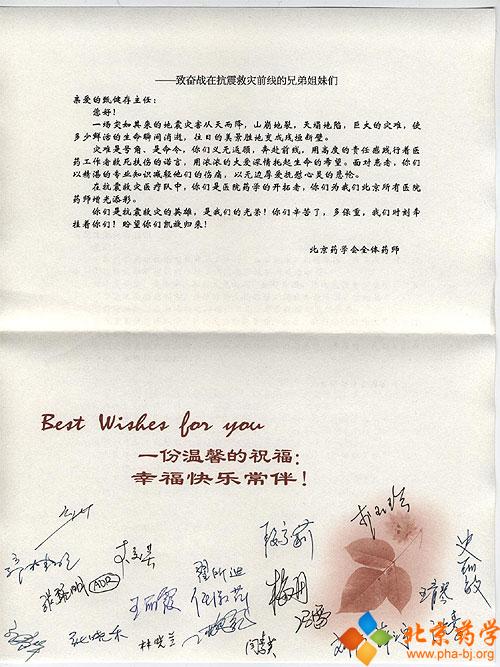 ——致奋战在抗震救灾前线的兄弟姐妹们
亲爱的甄健存主任：
您好！
一场突如其来的地震灾害从天而降，山崩地裂，天塌地陷，巨大的灾难，使
多少鲜活的生命瞬间消逝，往日的美景胜地变成残垣断壁。
灾难是号角，是命令，你们义无返顾，奔赴前线，用高度的责任感践行着医
药工作者救死扶伤的诺言，用浓浓的大爱深情托起生命的希望。面对患者，你们
以精湛的专业知识减轻他们的伤痛，以无边厚爱抚慰心灵的悲怆。
在抗震救灾医疗队中，你们是医院药学的开拓者，你们为我们北京所有医院
药师增光添彩。
你们是抗震救灾的英雄，是我们的光荣！你们辛苦了，多保重，我们时刻牵
挂着你们！盼望你们凯旋归来！
北京药学会全体药师
Best Wishes for you
一份温馨的祝福：
幸福快乐常伴！
ADR
王丽霞
翟所迪
梅丹
林晓兰
史丽敏
北京药学
www.pha-bj.org